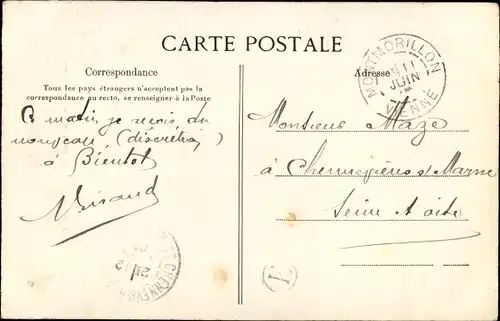 CARTE POSTALE
Correspondance
Tous les pays étrangers n'acceptent pas la
correspondance au recto, se renseigner à la Poste
Ce matin je reçois du
(discrétion)
à Bientôt
Adresse
MONTMORILLON
11
JUIN
VIENNE
Monsieur Maze
à Chennevières s/ Marne
Seine & Oise